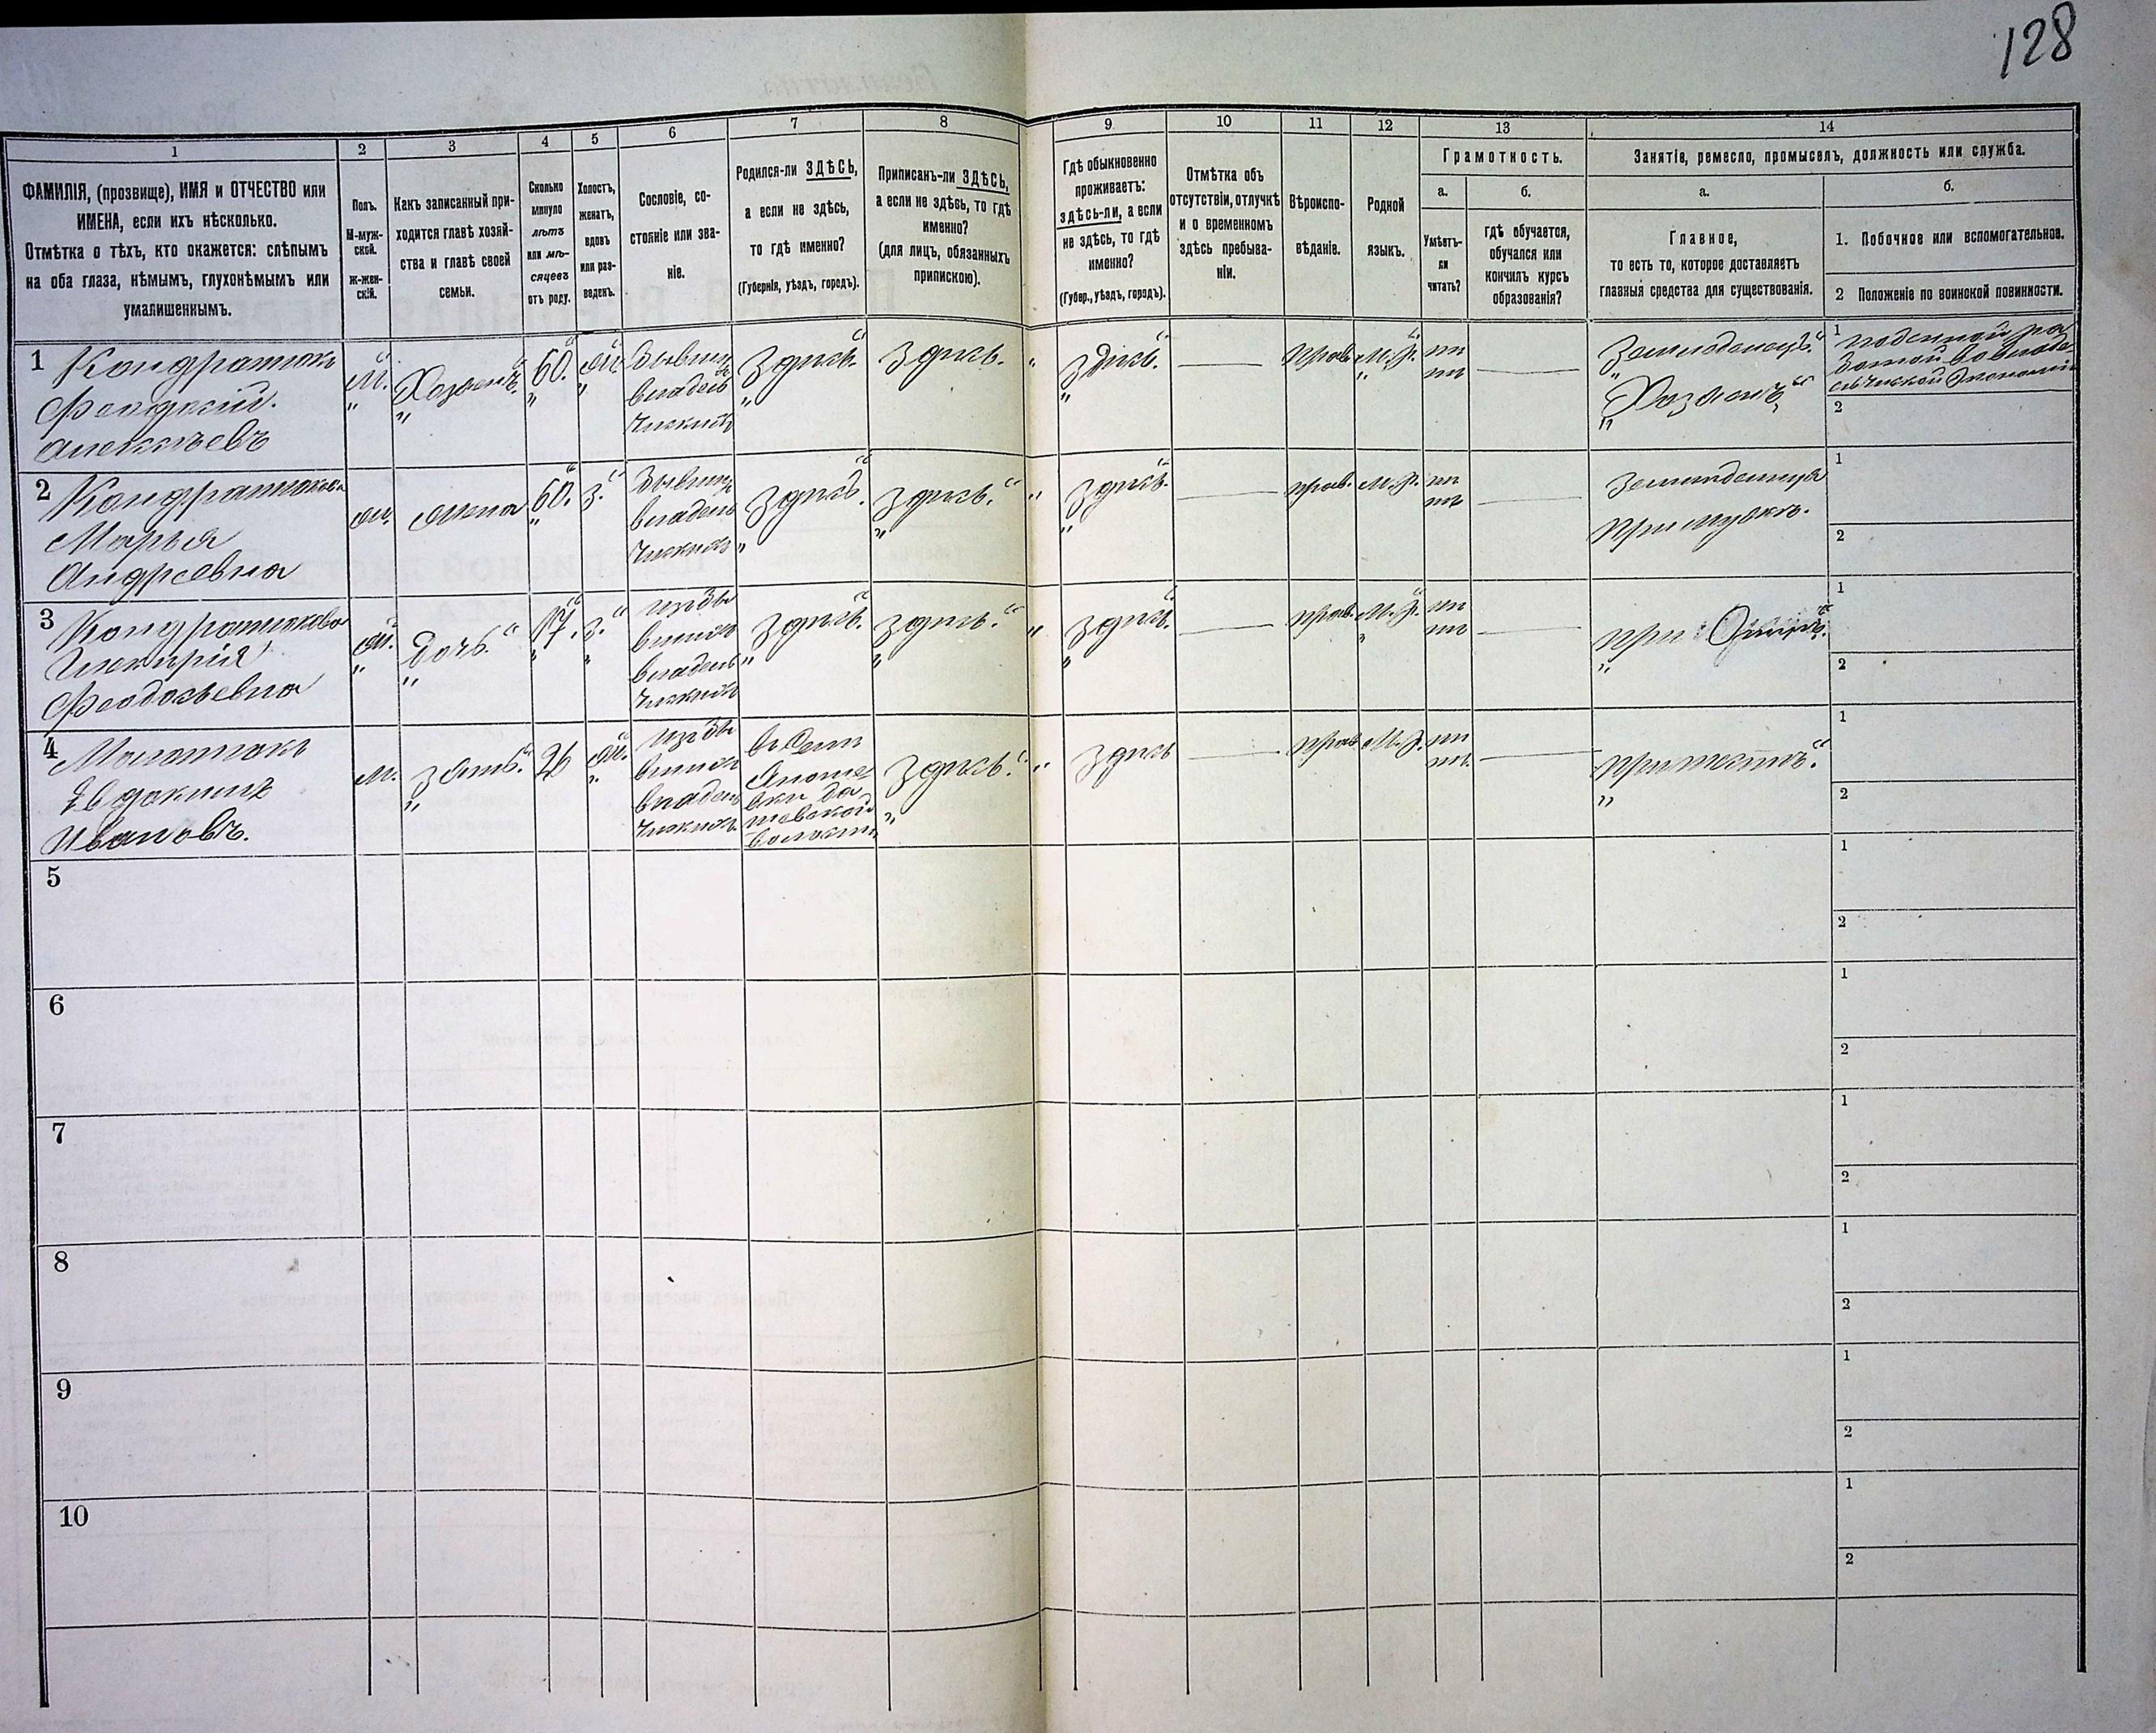 128
1
2
3
4
5
6
7
8
9
10
11
12
13
14
ФАМИЛІЯ, (прозвище), ИМЯ и ОТЧЕСТВО или
ИМЕНА, если ихъ нѣсколько.
Отмѣтка о тѣхъ, кто окажется: слѣпымъ
на оба глаза, нѣмымъ, глухонѣмымъ или
умалишеннымъ.
Полъ.
М-муж-
ской.
Ж-жен-
скій.
Какъ записанный при-
ходится главѣ хозяй-
ства и главѣ своей
семьи.
Сколько
минуло
лѣтъ
или мѣ-
сяцевъ
отъ роду.
Холостъ,
женатъ,
вдовъ
или раз-
веденъ.
Сословіе, со-
стояніе или зва-
ніе.
Родился-ли ЗДѢСЬ,
а если не здѣсь,
то гдѣ именно?
(Губернія, уѣздъ, городъ).
Приписанъ-ли ЗДѢСЬ,
а если не здѣсь, то гдѣ
именно?
(для лицъ, обязанныхъ
припискою).
Гдѣ обыкновенно
проживаетъ:
здѣсь-ли, а если
не здѣсь, то гдѣ
именно?
(Губер., уѣздъ, городъ).
Отмѣтка объ
отсутствіи, отлучкѣ
и о временномъ
здѣсь пребыва-
ніи.
Вѣроиспо-
вѣданіе.
Родной
языкъ.
Грамотность.
а.
Умѣетъ-
ли
читать?
б.
гдѣ обучается,
обучался или
кончилъ курсъ
образованія?
Занятіе, ремесло, промыселъ, должность или служба.
а.
Главное,
то есть то, которое доставляетъ
главныя средства для существованія.
б.
1. Побочное или вспомогательное.
2 Положеніе по воинской повинности.
1
Кондратюкъ
Феодосій
Алексѣевъ
м.
Хозяинъ
60.
ж.
Бывш
владель
ческий
здѣсь.
здѣсь.
здѣсь.
прав.
м. р.
нѣ
тъ
Земледелецъ
Хозяинъ
1
2
2
Кондратюкова
Марья
Андреевна
ж.
жена
60.
з.
Бывш
владель
ческих
здѣсь.
здѣсь.
здѣсь.
прав.
м. р.
нѣ
тъ
при мужѣ.
1
2
3
Кондратюкова
Феодосьевна
ж.
дочь
17.
з.
изъ бы
вших
владель
ческих
здѣсь.
здѣсь.
здѣсь.
прав.
м. р.
нѣ
тъ
при Отцѣ.
1
2
4
Евдокимъ
Ивановъ.
м.
зять
26
ж.
изъ бы
вших
владель
ческих
волости
здѣсь.
здѣсь
прав
м. р.
нѣ
тъ
при тестѣ.
1
2
5
1
2
6
1
2
7
1
2
8
1
2
9
1
2
10
1
2